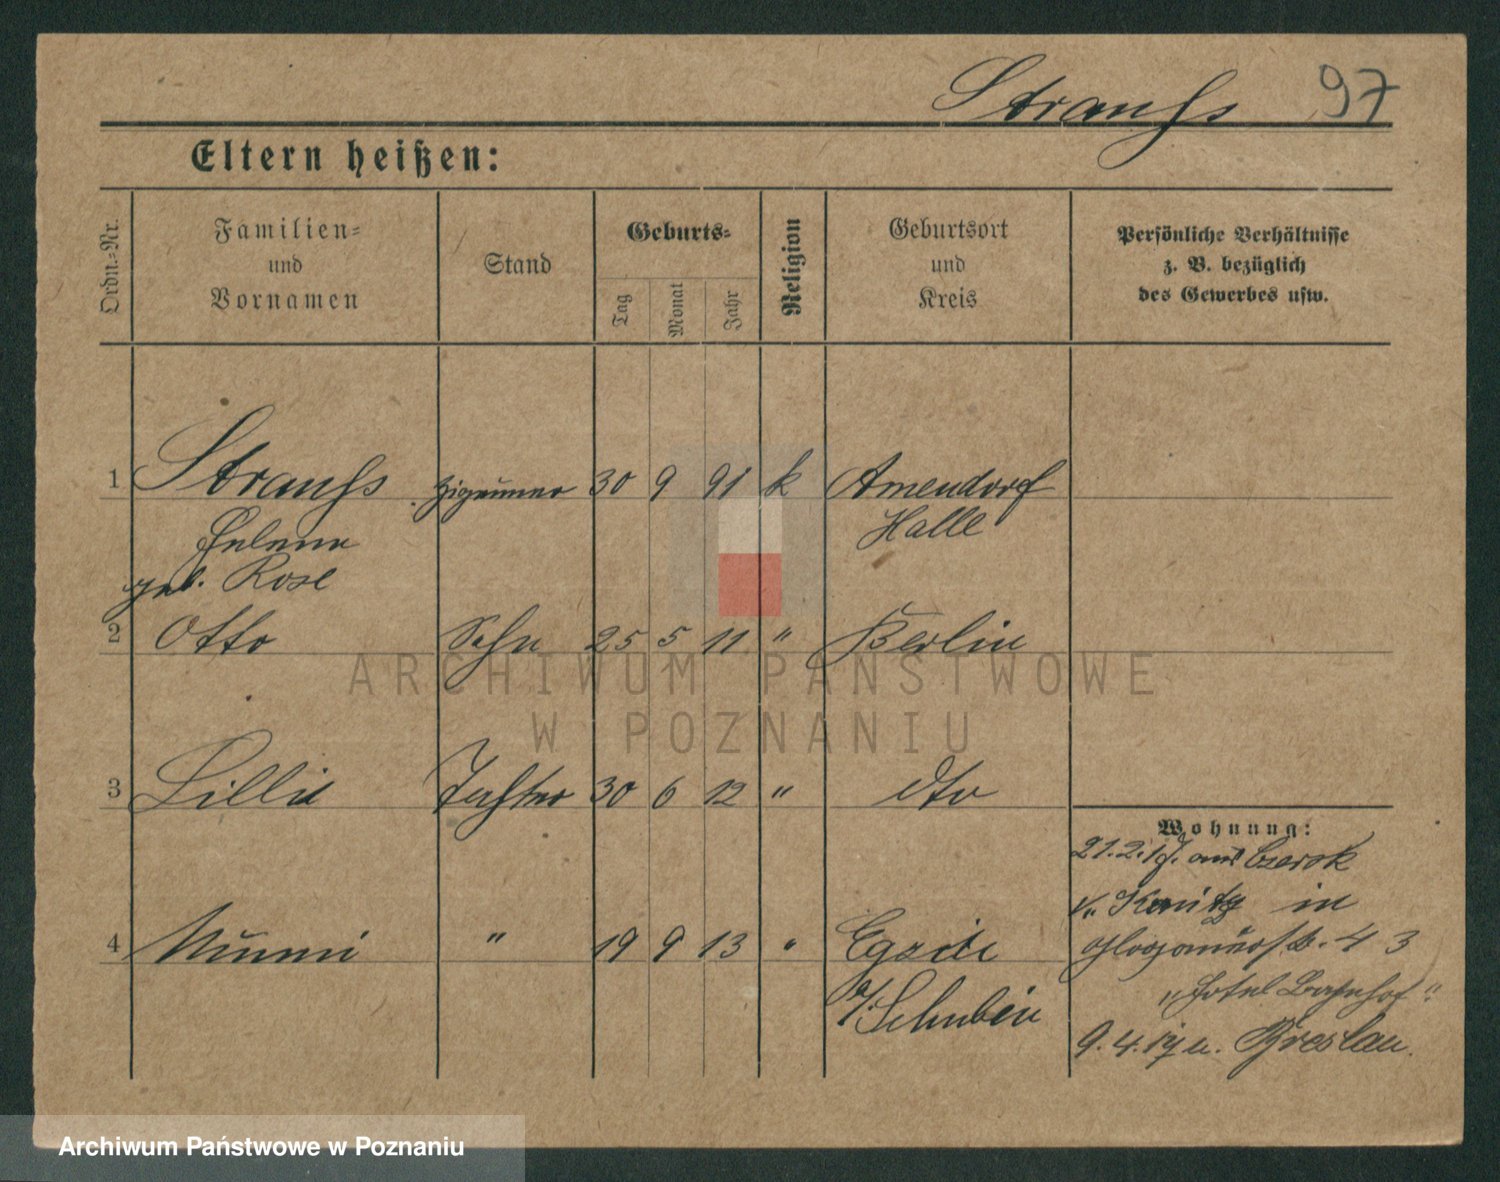 Strauß 97
Eltern heißen:
Ordn.-Nr.
Familien-
und
Vornamen
Stand
Geburts-
Tag
Monat
Jahr
Religion
Geburtsort
und
Kreis
Persönliche Verhältnisse
z. B. bezüglich
des Gewerbes usw.
1 Strauß Zigeuner 30 9 91 k Amendorf
Helene Halle
geb. Rose
2 Otto Sohn 25 5 11 " Berlin
3 Lilli Tochter 30 6 12 " dto
Wohnung:
21.2.17. aus Czersk
Konitz in
4 " 19 9 13 "
Glogauerstr. 43
b/Schubin
"Hotel Bahnhof"
9.4.17 n. Breslau.
ARCHIWUM PAŃSTWOWE
W POZNANIU
Archiwum Państwowe w Poznaniu